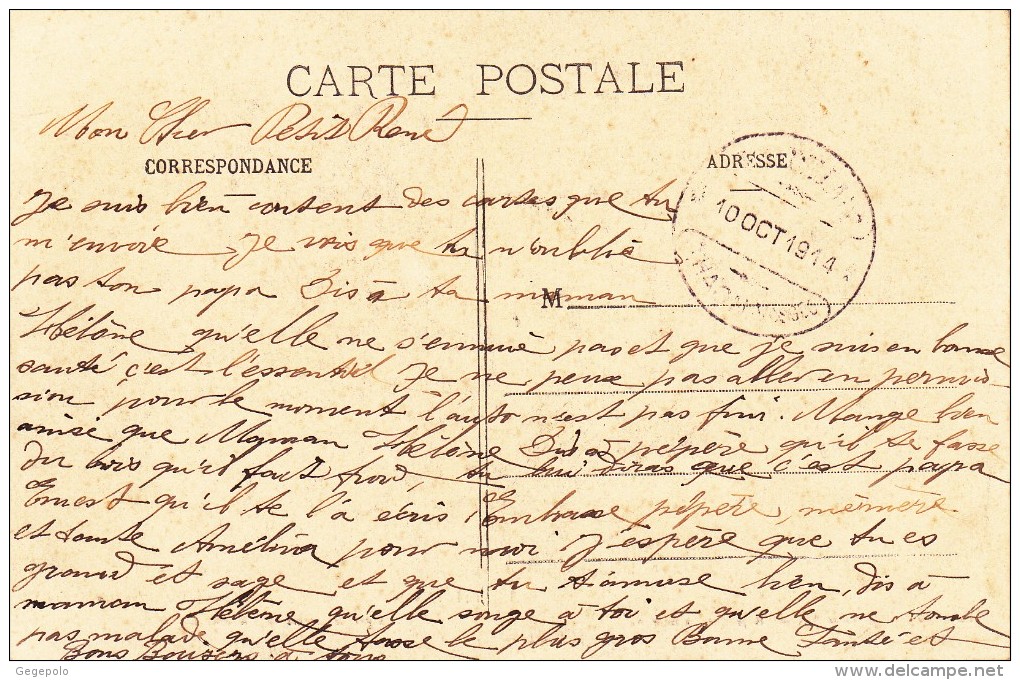 CARTE POSTALE
Mon Cher Petit René
CORRESPONDANCE
ADRESSE
10 OCT 1914
Je suis bien content des cartes que tu
m'envoie Je vois que tu n'oublie
pas ton papa Dis à ta maman
M
Hélène qu'elle ne s'ennuie pas et que je suis en bonne
santé c'est l'essentiel Je ne peux pas aller en permis-
sion pour le moment l'auto n'est pas fini. Mange bien
ainsi que Maman Hélène Dis à pépère qu'il te fasse
du bois qu'il fait froid tu lui diras que c'est papa
Ernest qu'il te l'a écris Embrasse pépère, mémère
et tante Amélina pour moi J'espère que tu es
grand et sage et que tu t'amuse bien, dis à
maman Hélène qu'elle songe à toi et qu'elle ne tombe
pas malade qu'elle fasse le plus gros Bonne Santé et
Bons Baisers à tous
Gegepolo
www.delcampe.net